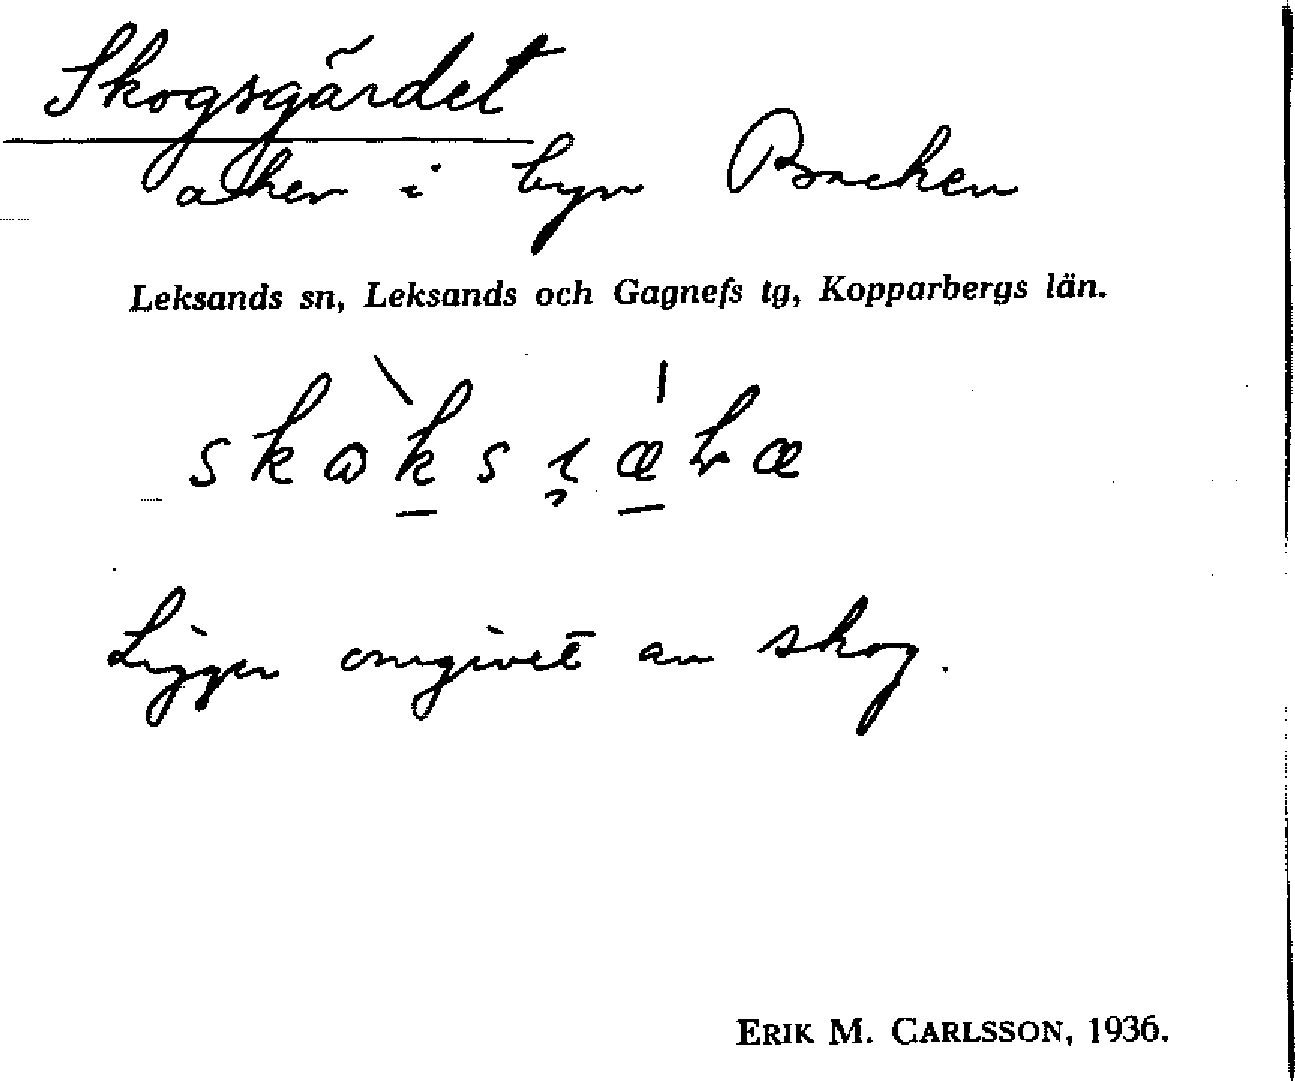 Skogsgärdet
aker i byn Backen
Leksands sn, Leksands och Gagnefs tg, Kopparbergs län.
Ligger omgivet av skog.
ERIK M. CARLSSON, 1936.